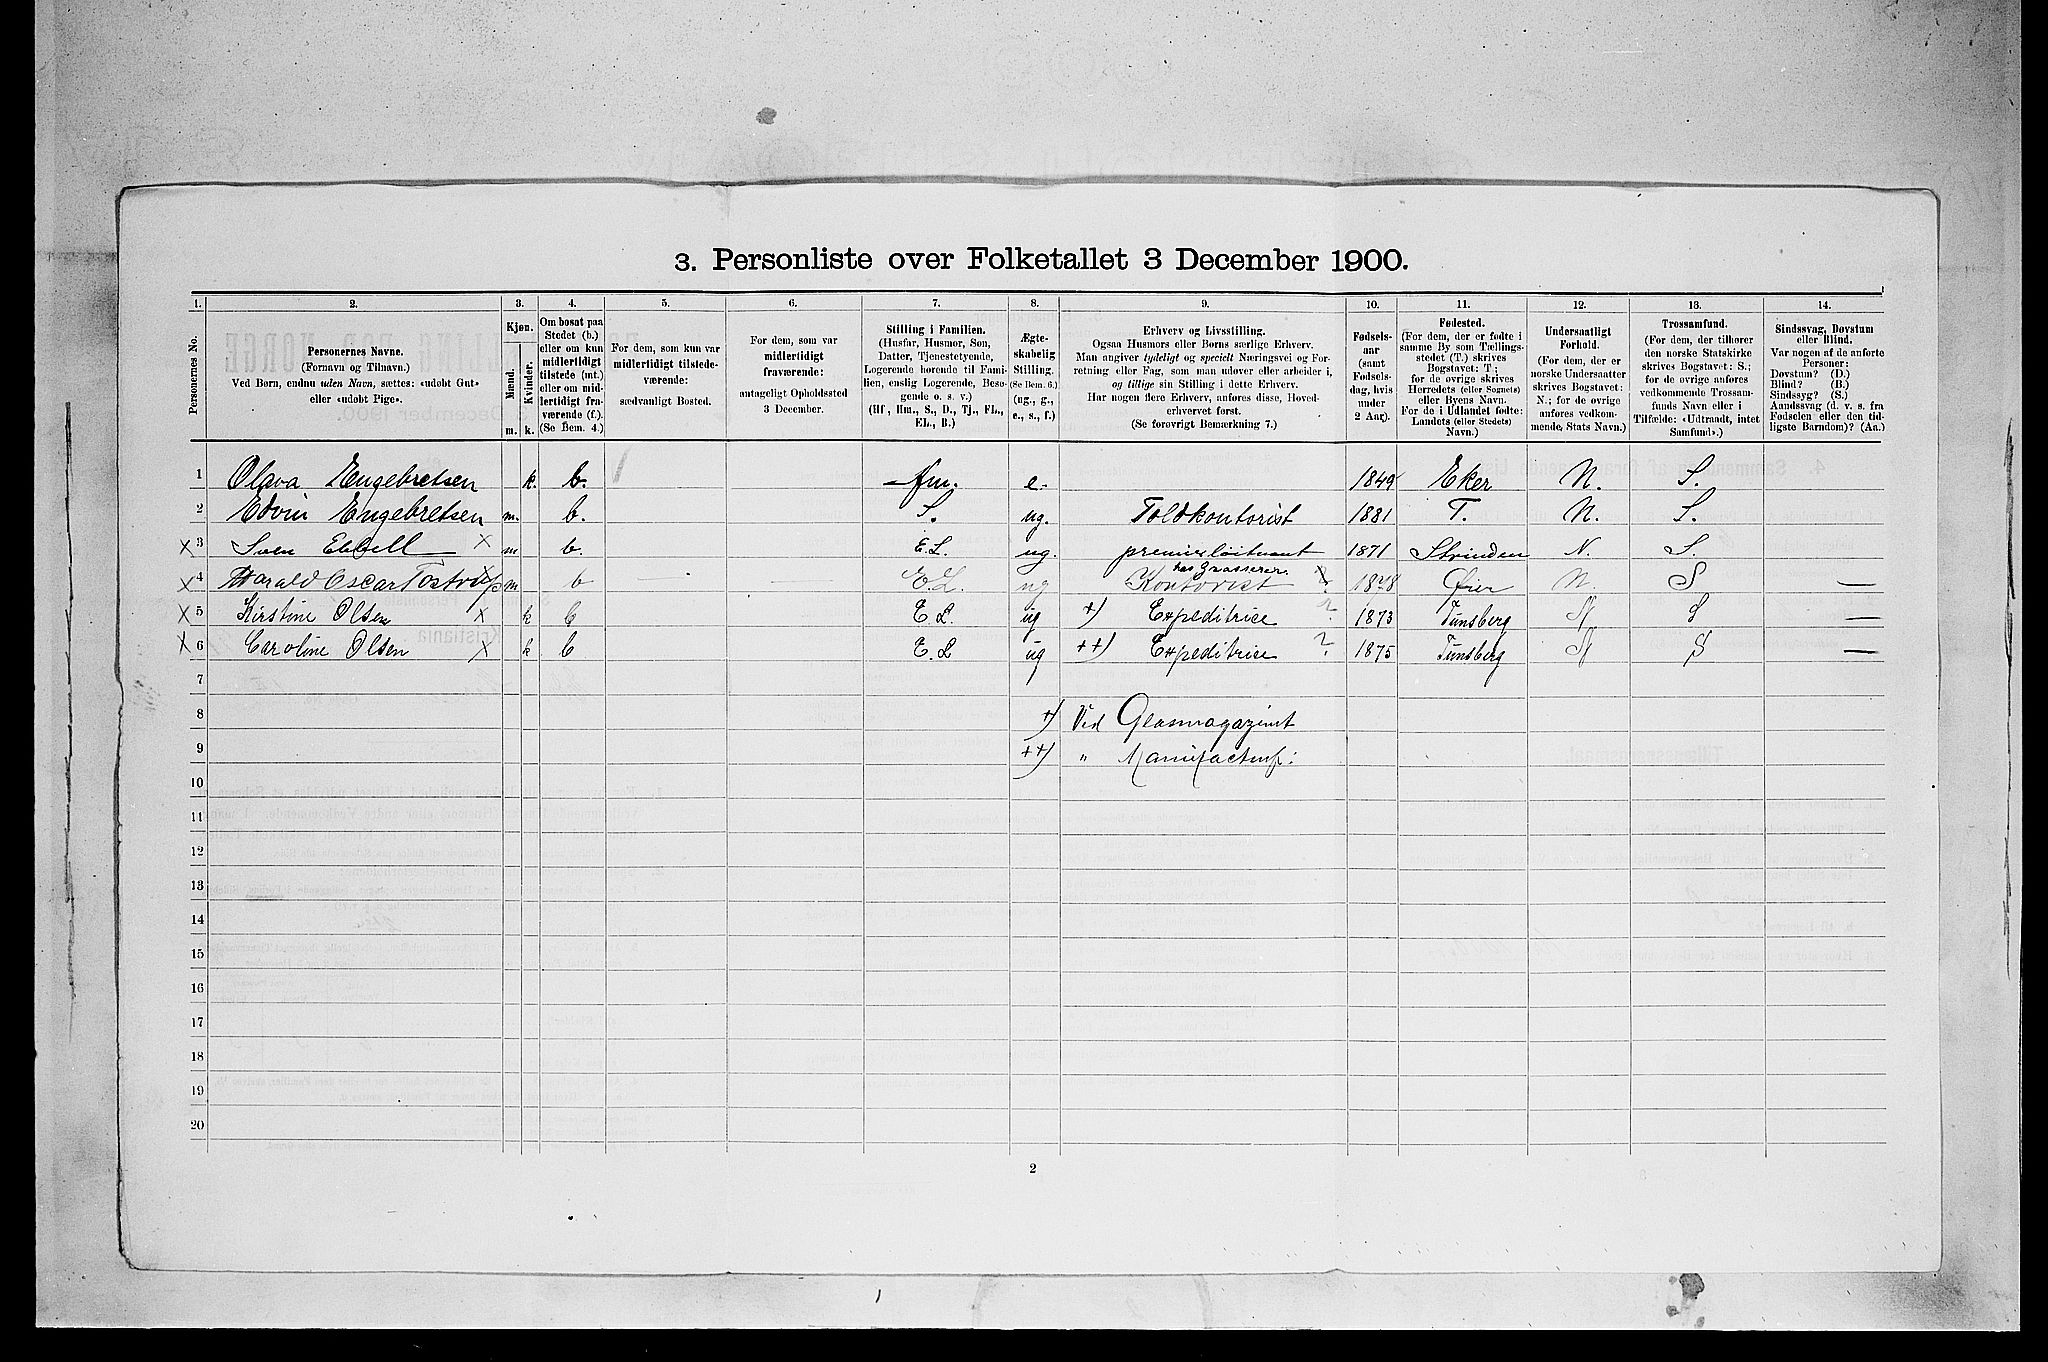 3. Personliste over Folketallet 3 December 1900.
1. 2. 3. 4. 5. 6. 7. 8. 9. 10. 11. 12. 13. 14.
Personernes No.
Personernes Navne.
(Fornavn og Tilnavn.)
Ved Børn, endnu uden Navn, sættes: «udøbt Gut»
eller «udøbt Pige».
Kjøn.
Mænd. Kvinder.
m. k.
Om bosat paa
Stedet (b.)
eller om kun
midlertidigt
tilstede (mt.)
eller om mid-
lertidigt fra-
værende (f.).
(Se Bem. 4.)
For dem, som kun var
midlertidigt tilstede-
værende:
sædvanligt Bosted.
For dem, som var
midlertidigt
fraværende:
antageligt Opholdssted
3 December.
Stilling i Familien.
(Husfar, Husmor, Søn,
Datter, Tjenestetyende,
Logerende hørende til Fami-
lien, enslig Logerende, Besø-
gende o. s. v.)
(Hf., Hm., S., D., Tj., FL.,
EL., B.)
Ægte-
skabelig
Stilling.
(Se Bem. 6.)
(ug., g.,
e., s., f.)
Erhverv og Livsstilling.
Ogsaa Husmors eller Børns særlige Erhverv.
Man angiver tydeligt og specielt Næringsvei og For-
retning eller Fag, som man udøver eller arbeider i,
og tillige sin Stilling i dette Erhverv.
Har nogen flere Erhverv, anføres disse, Hoved-
erhvervet først.
(Se forøvrigt Bemærkning 7.)
Fødsels-
aar
(samt
Fødsels-
dag, hvis
under
2 Aar).
Fødested.
(For dem, der er fødte i
samme By som Tællings-
stedet (T.) skrives
Bogstavet: T;
for de øvrige skrives
Herredets (eller Sognets)
eller Byens Navn.
For de i Udlandet fødte:
Landets (eller Stedets)
Navn.)
Undersaatligt
Forhold.
(For dem, der er
norske Undersaatter
skrives Bogstavet:
N.; for de øvrige
anføres vedkom-
mende, Stats Navn.)
Trossamfund.
(For dem, der tilhører
den norske Statskirke
skrives Bogstavet: S.;
for de øvrige anføres
vedkommende Trossam-
funds Navn eller i
Tilfælde: «Udtraadt, intet
Samfund».)
Sindssvag, Døvstum
eller Blind.
Var nogen af de anførte
Personer:
Døvstum? (D.)
Blind? (B.)
Sindssyg? (S.)
Aandssvag (d. v. s. fra
Fødselen eller den tid-
ligste Barndom)? (Aa.)
1 Olava Engebretsen k. b. Hm. e. 1849 Eker N. S.
2 Edvin Engebretsen m. b. S. ug. Toldkontorist 1881 T. N. S.
X 3 Sven Ebbell X m b. E.L. ug. premierløitnant 1871 Strinden N. S.
hos Grosserer.
X 4 Harald Oscar Tostrup X m b — — E.L. ug Kontorist 1878 Øier N S —
X 5 Kirstine Olsen X k b E.L. ug +) Expeditrice ? 1873 Tunsberg N S —
X 6 Caroline Olsen X k b E.L ug ++) Expeditrice ? 1875 Tunsberg N S —
7
8 +) Ved Glasmagazinet
9 ++) " Manufacturf:
10
11
12
13
14
15
16
17
18
19
20
2